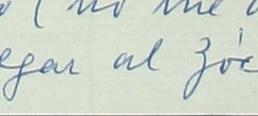 ( no me
egar al zóc